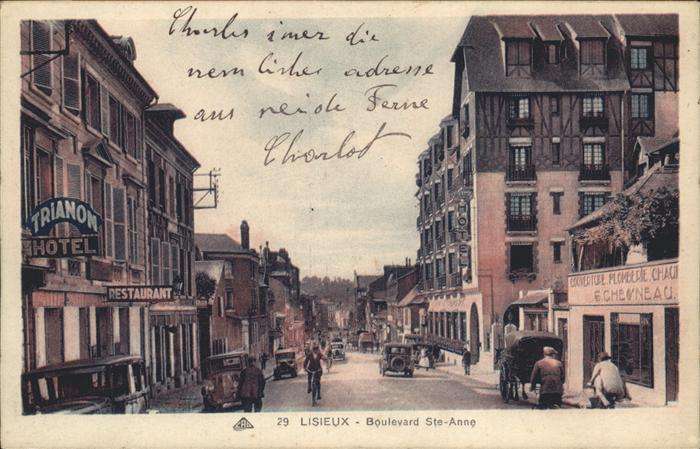 Charles imer die
nem lisher adresse
aus reide Ferne
Charlot
TRIANON
HOTEL
RESTAURANT
COUVERTURE PLOMBERIE CHAU
E. CHESNEAU
29 LISIEUX - Boulevard Ste-Anne